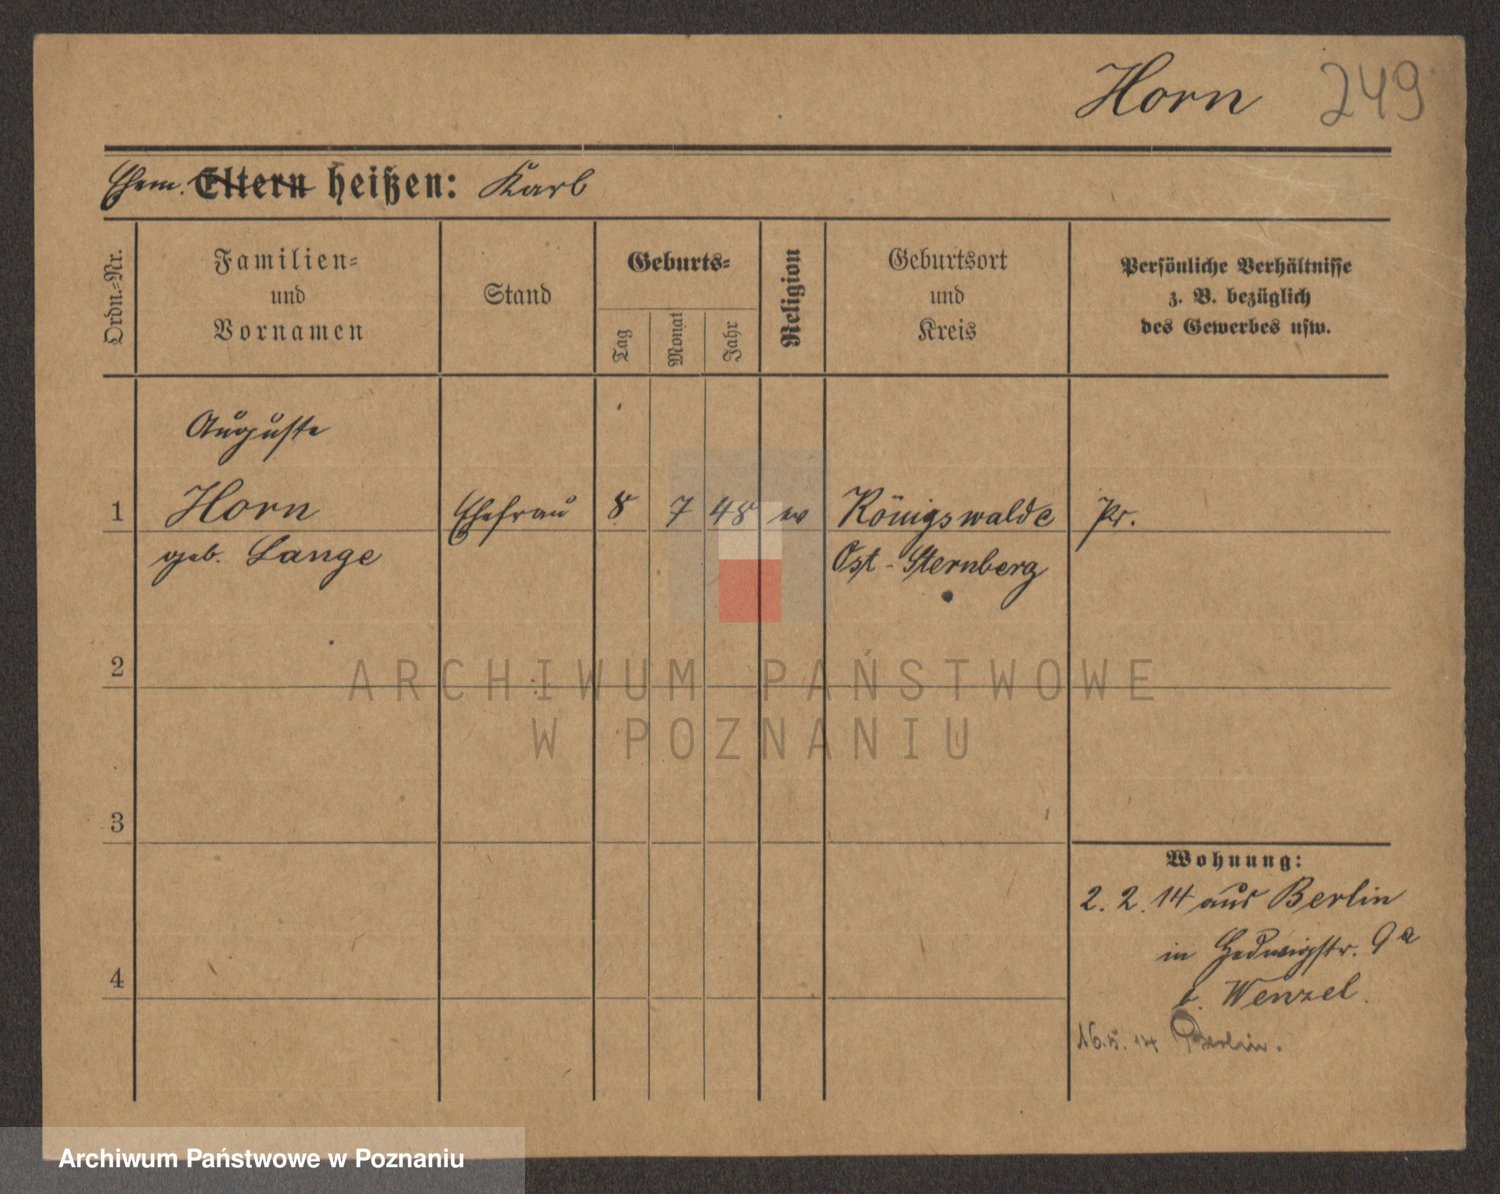 Horn 249
Ehem. Eltern heißen: Karl
Ordn.-Nr.
Familien-
und
Vornamen
Stand
Geburts-
Tag
Monat
Jahr
Religion
Geburtsort
und
Kreis
Persönliche Verhältnisse
z. B. bezüglich
des Gewerbes usw.
Auguste
1 Horn Ehefrau 8 7 48 ev Königswalde Pr.
geb. Lange Ost-Sternberg
2
3
4
Wohnung:
2. 2. 14 aus Berlin
in Hedwigstr. 9a
b. Wenzel.
16. 5. 14 Berlin.
ARCHIWUM PAŃSTWOWE
W POZNANIU
Archiwum Państwowe w Poznaniu